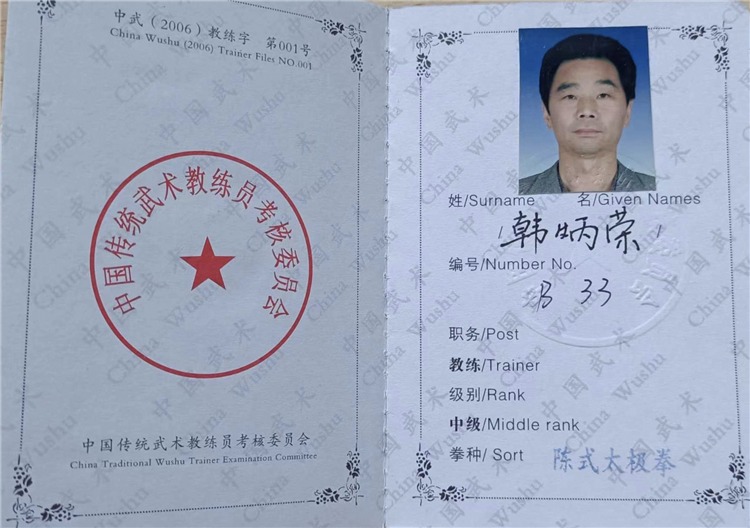 中武（2006）教练字 第001号
China Wushu (2006) Trainer Files NO.001
中国传统武术教练员考核委员会
中国传统武术教练员考核委员会
China Traditional Wushu Trainer Examination Committee
姓/Surname 名/Given Names
韩炳荣
编号/Number No.
B 33
职务/Post
教练/Trainer
级别/Rank
中级/Middle rank
拳种/ Sort 陈式太极拳
中国武术
China Wushu